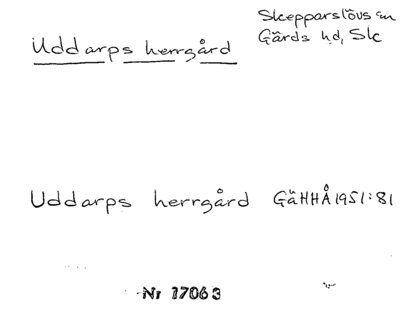 Uddarps herrgård
Skepparslövs sn
Gärds hd, Sk
Uddarps herrgård GäHHÅ 1951:81
Nr 17063